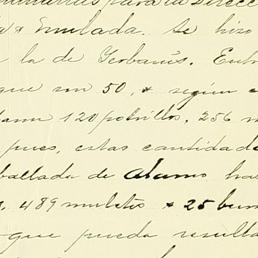 para la Direcc
y Emulada. Se hizo
la de Gobanús. Entr
que son 50, y según e
damu 120 potrillos, 256 m
pues, estas cantidade
ballada de Alamo ha
, 489 muletos y 25 bur
que pueda resulta